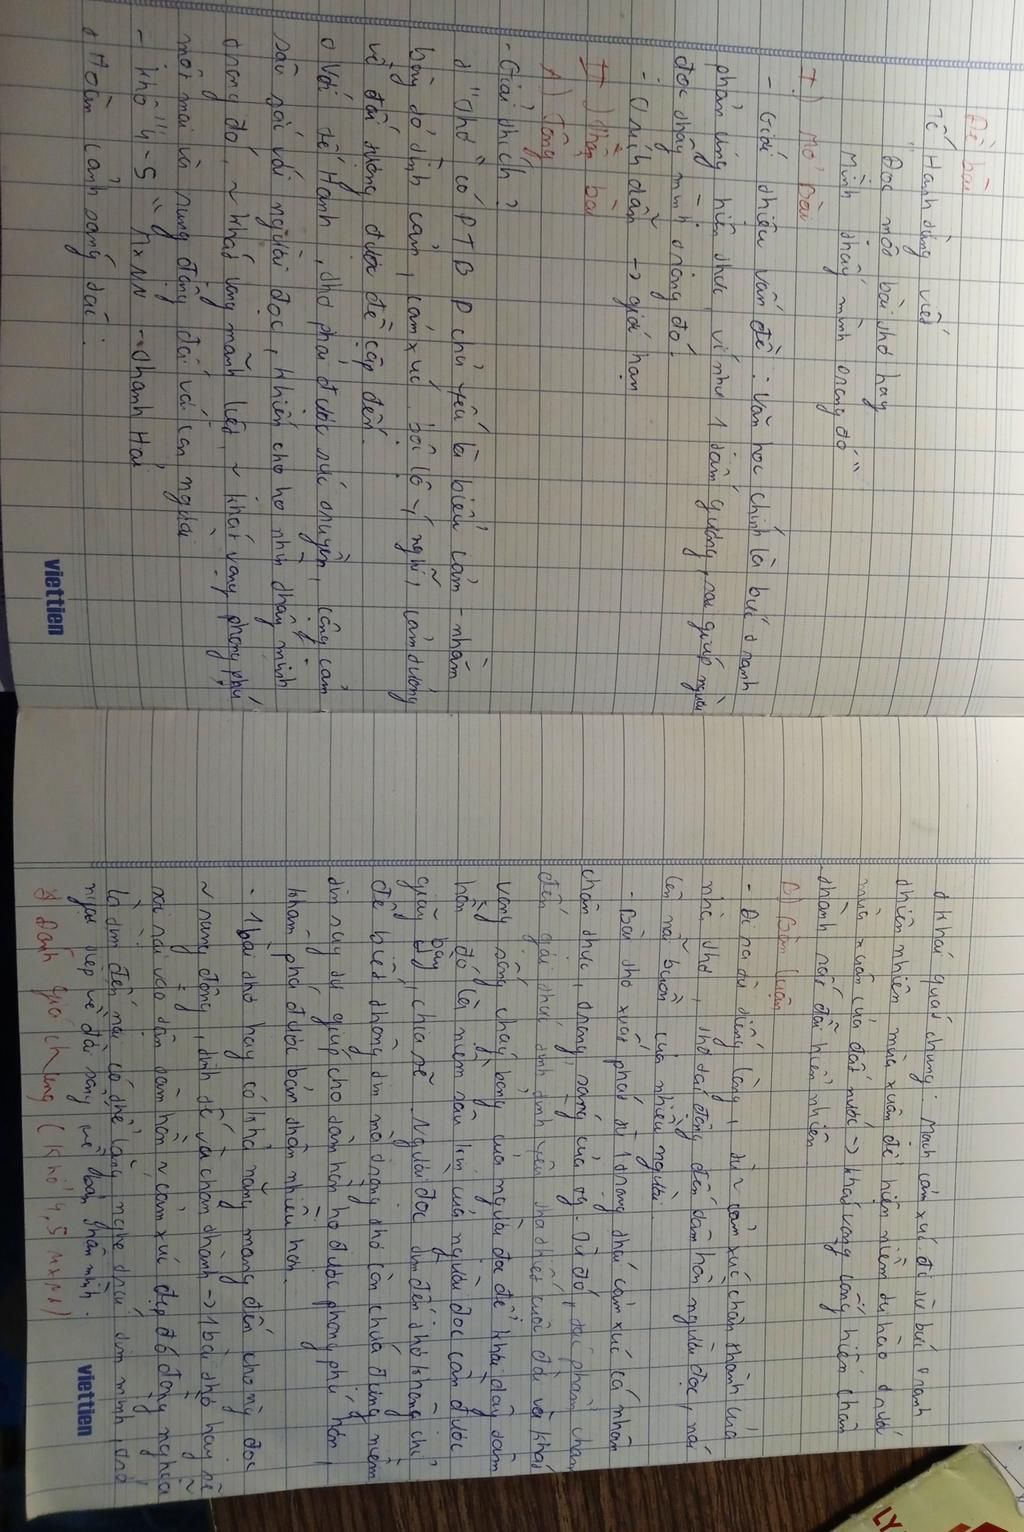 Đề bài
Tế Hanh từng viết
"Đọc một bài thơ hay
Mình thấy mình trong đó"
I) Mở bài
- Giới thiệu vấn đề: Văn học chính là bức tranh
phản ứng hiện thực, ví như 1 tấm gương, nó giúp người
đọc thấy mình trong đó.
- Trích dẫn → giới hạn
II) Thân bài
A) Tổng
- Giải thích?
+ "Thơ" có PTBĐ chủ yếu là biểu cảm - nhằm
bày tỏ tình cảm, cảm xúc, bộc lộ ý nghĩ, cảm tưởng
về đối tượng được đề cập đến.
+ Với Tế Hanh, thơ phải được sức truyền, cộng cảm
sâu sắc với người đọc, khiến cho họ nhìn thấy mình
trong đó, ~ khát vọng mãnh liệt, ~ khát vọng phong phú,
mới mẻ và rung động đối với con người
- khổ "4-5" MXNN - Thanh Hải
+ Hoàn cảnh sáng tác:
+ Khái quát chung: Mạch cảm xúc đi từ bức tranh
thiên nhiên mùa xuân để hiện niềm tự hào trước
mùa xuân của đất nước → khát vọng cống hiến chân
thành rất đỗi hiển nhiên
B) Bàn luận
- Đi ra từ tiếng lòng, từ ~ cảm xúc chân thành của
nhà thơ, thơ tác động đến tâm hồn người đọc, nói
lên nỗi buồn của nhiều người.
- Bài thơ xuất phát từ 1 trạng thái cảm xúc cá nhân
chân thực, trong sáng của tg. Từ đó, tác phẩm chạm
đến gọi thức tình yêu tha thiết cuộc đời và khát
vọng sống cháy bỏng của người đọc để khơi dậy tâm
hồn đó là niềm sâu kín của người đọc cần được
giãi bày, chia sẻ. Người đọc tìm đến thơ không chỉ
để biết thông tin mà trong thơ còn chứa đựng niềm
tin này sẽ giúp cho tâm hồn họ được phong phú hơn,
khám phá được bản thân nhiều hơn.
- 1 bài thơ hay có khả năng mang đến cho ng đọc
~ rung động, tinh tế và chân thành → 1 bài thơ hay sẽ
rót vào tận tâm hồn ~ cảm xúc đẹp đẽ đồng nghĩa
là tìm đến nó có thể lắng nghe trái tim mình, and
ngẫm tiếp về đời sống về bản thân mình.
* Đánh giá chung (khổ 4, 5 MXNN)
viettien
viettien